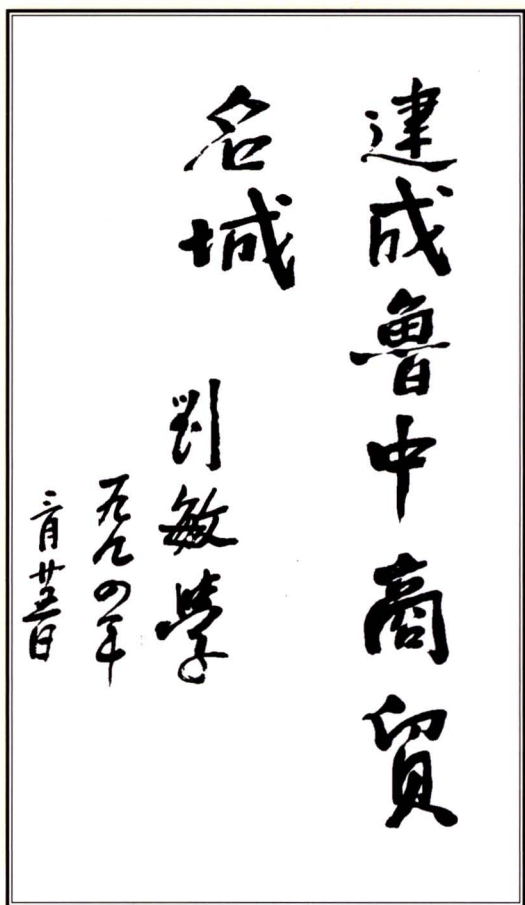 建成魯中商貿
名城
劉敏學
一九九四年
三月廿五日